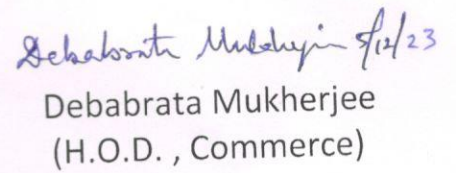 Debabrata Mukherjee 5/12/23
Debabrata Mukherjee
(H.O.D. , Commerce)